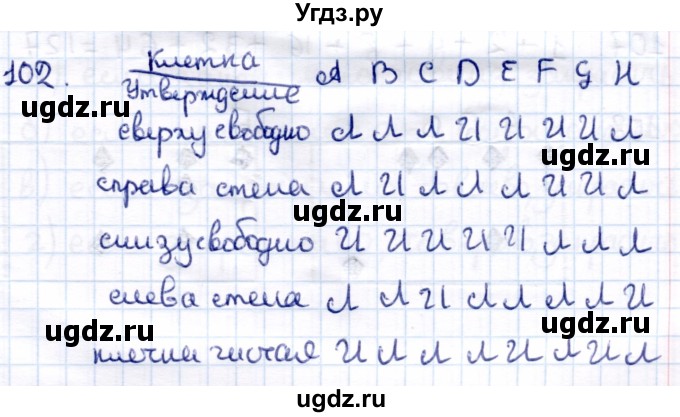 Угдз.ру
102. Клетка A B C D E F G H
Утверждение
сверху свободно Л Л Л И И И И Л
ugdz.ru ugdz.ru
справа стена Л И Л Л Л И И Л
ugdz.ru
снизу свободно И И И И И Л Л Л
ugdz.ru ugdz.ru
слева стена Л Л И Л Л Л Л И
ugdz.ru
клетка чистая И Л Л Л И Л И Л
ugdz.ru ugdz.ru